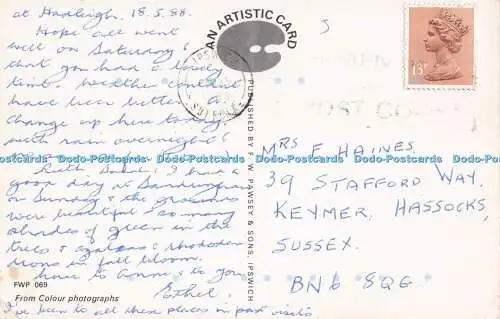 at Hadleigh. 18.5.88.
Hope all went
well on Saturday &
that you had a lovely
time. Weather couldn't
have been better. A
change up here today
with rain overnight &
Ruth Babel & I had a
good day at Sandringham
on Sunday & the grounds
were beautiful & so many
shades of green in the
trees & azaleas & rhododen-
drons in full bloom.
love to Conn & to you
Ethel.
I've been to all these places in past visits
FWP 069
From Colour photographs
AN ARTISTIC CARD
PUBLISHED BY F. W. PAWSEY & SONS, IPSWICH
13P
POST CO
MRS F HAINES
39 STAFFORD WAY.
KEYMER, HASSOCKS,
SUSSEX.
BN6 8QG
Dodo-Postcards Dodo-Postcards Dodo-Postcards Dodo-Postcards Dodo-Postcards Dodo-Postcards